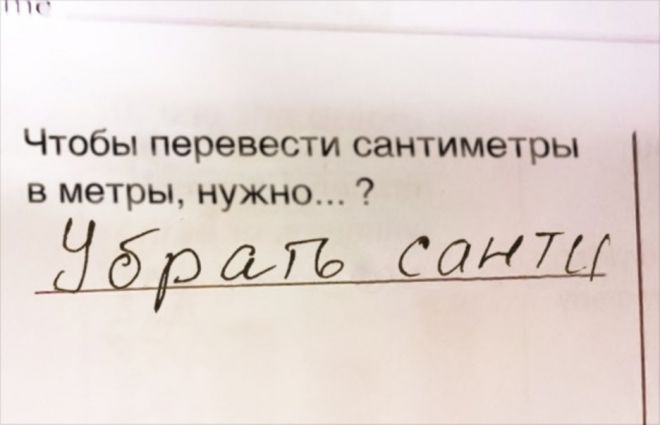 Чтобы перевести сантиметры
в метры, нужно... ?
Убрать санти